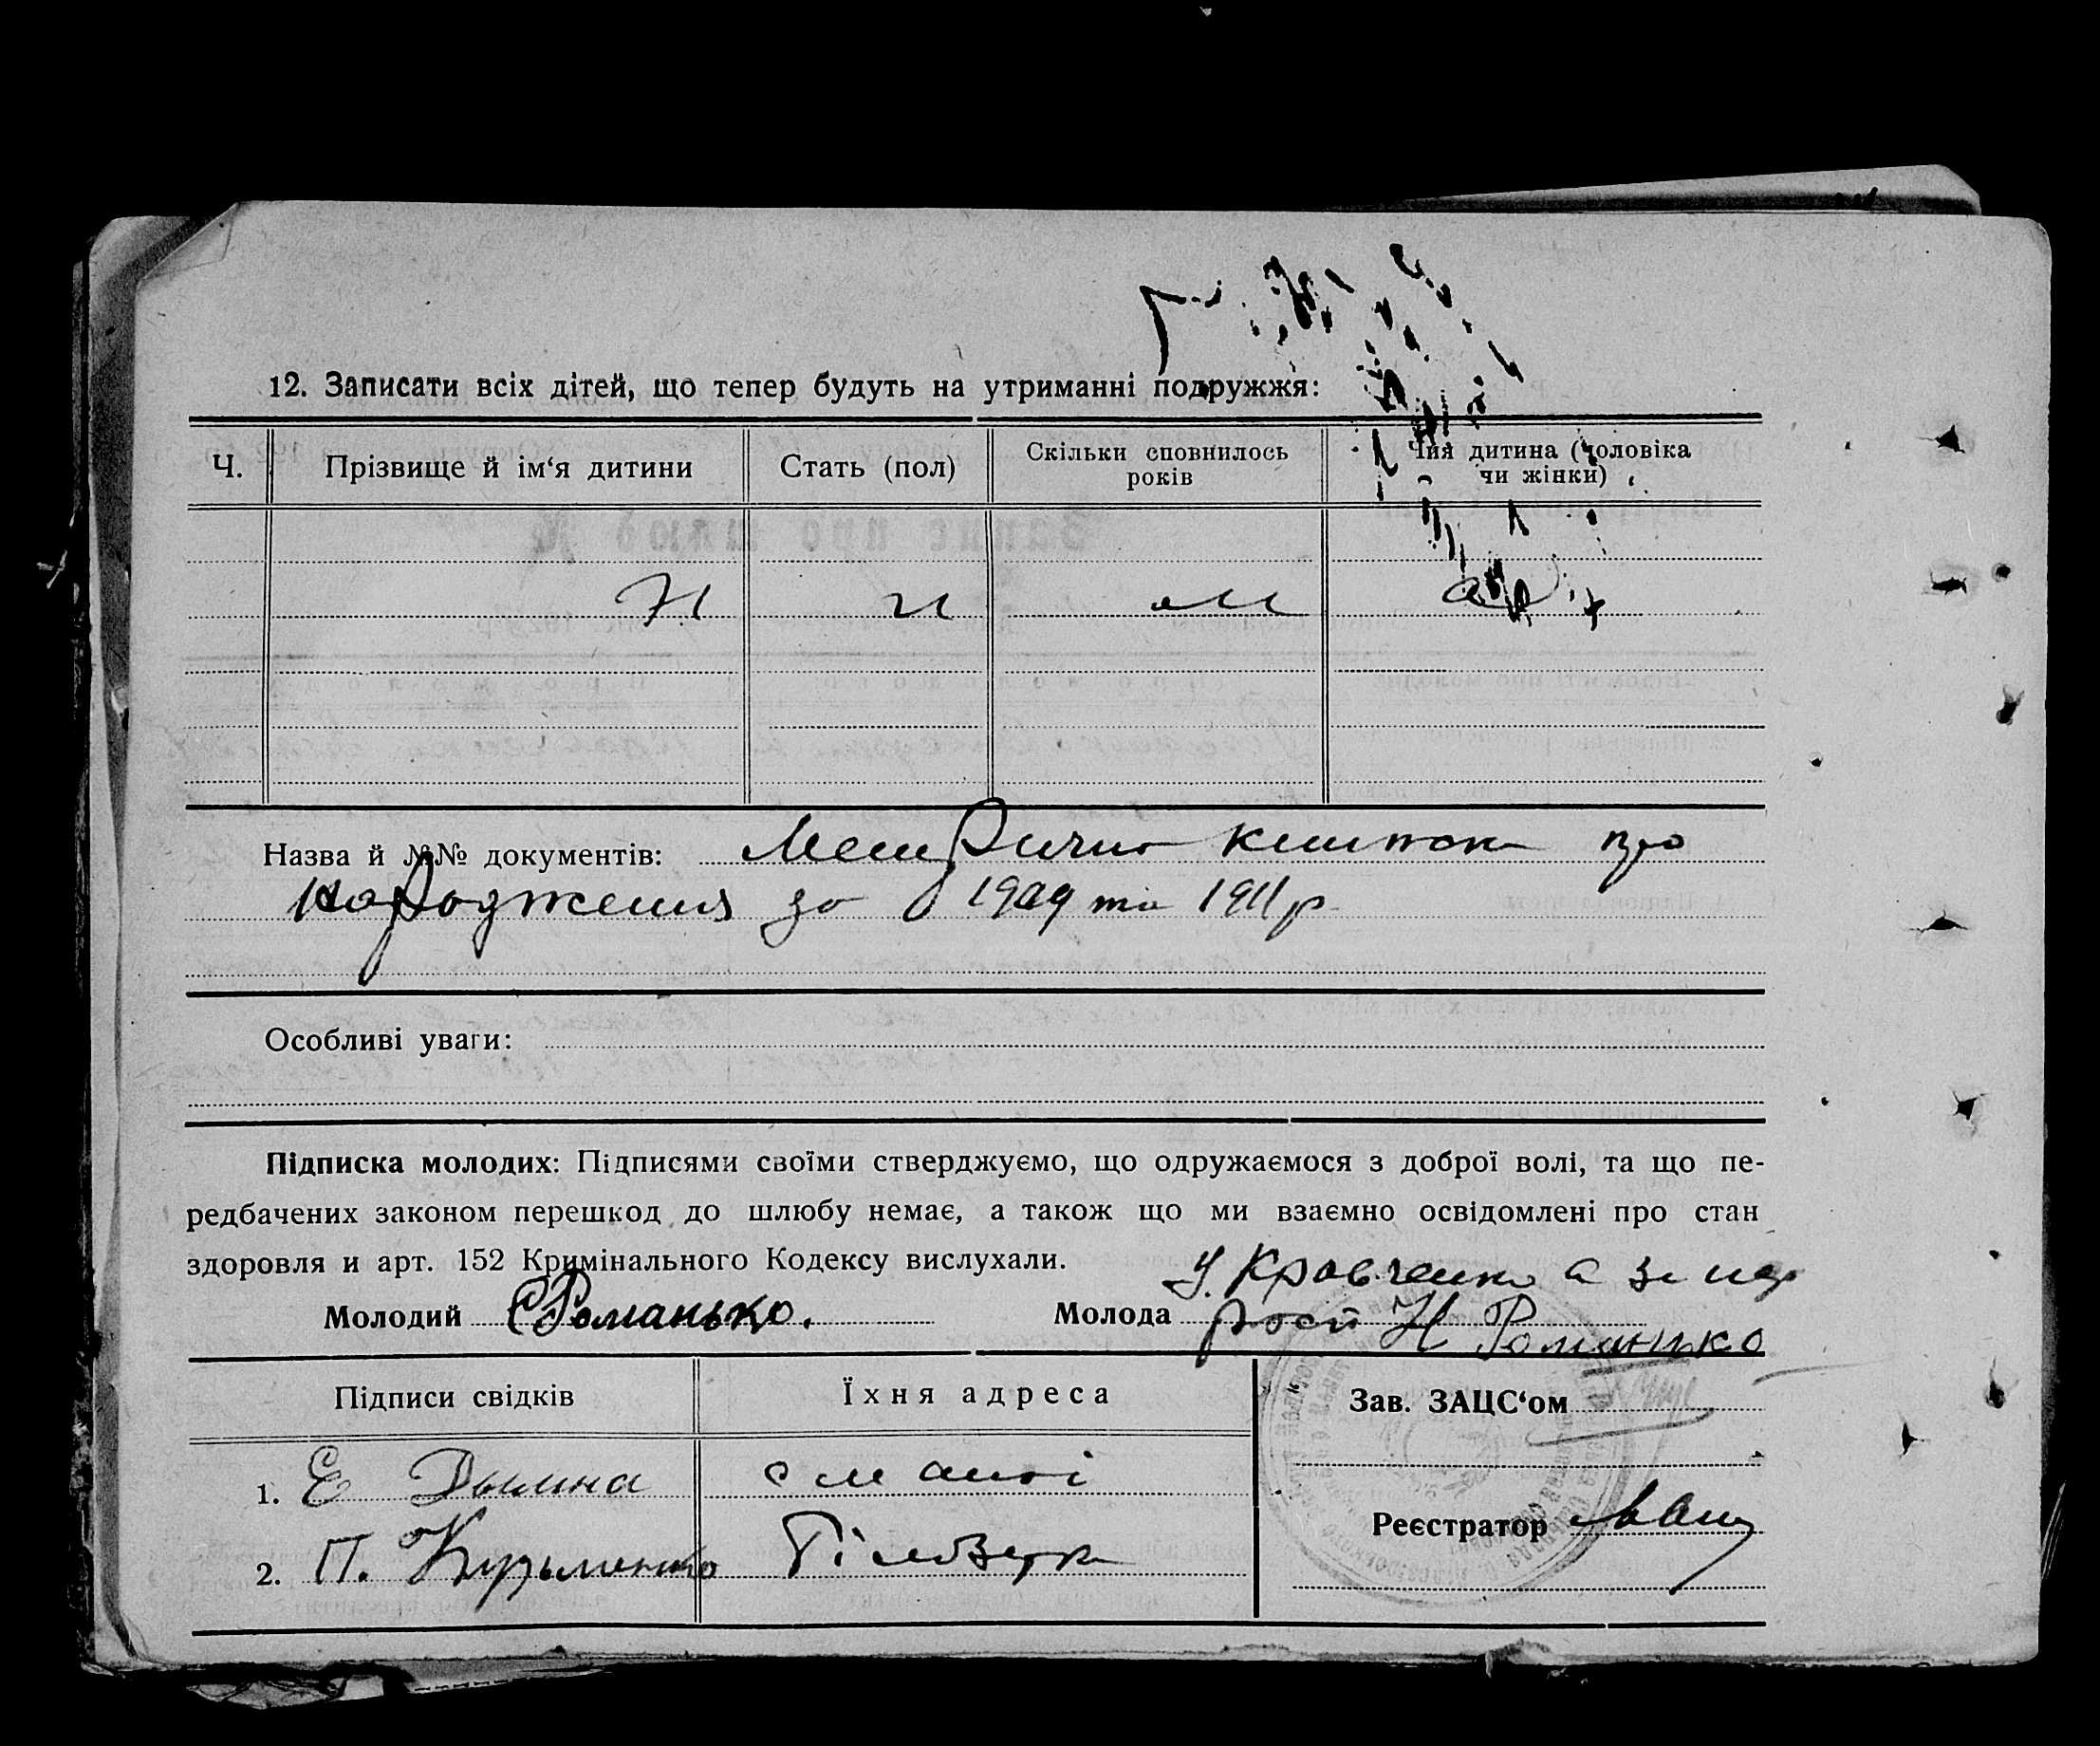 12. Записати всіх дітей, що тепер будуть на утриманні подружжя:
Ч. Прізвище й ім‘я дитини Стать (пол) Скільки сповнилось років Чия дитина (чоловіка чи жінки)
Назва й №№ документів: Метрична книжка про
народження за 1909 та 1911 р
Особливі уваги:
Підписка молодих: Підписями своїми стверджуємо, що одружаємося з доброї волі, та що пе-
редбачених законом перешкод до шлюбу немає, а також що ми взаємно освідомлені про стан
здоровля и арт. 152 Кримінального Кодексу вислухали.
Кравченко а за не
Молодий Романько. Молода рост Н Романько
Підписи свідків Їхня адреса Зав. ЗАЦС‘ом
1. Е Дымна
2. П. Кузьменко Реєстратор